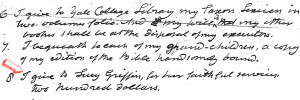 6. I give to Yale College Library my Saxon Lexicon in
two volumes folio. And my will that my other
books shall be at the disposal of my executors.
7. I bequeath to each of my grand-children, a copy
of my edition of the Bible handsomely bound.
8 I give to Lucy Griffin, for her faithful services
two hundred dollars.